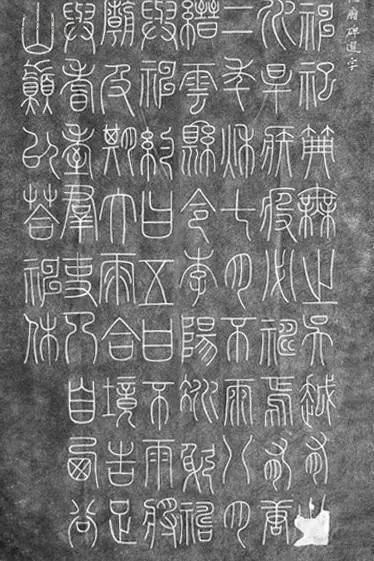 廟碑選字
神祀典無之吳越有
水旱疾疫必禱焉有唐
二年秋七月不雨八月
縉雲縣令李陽冰躬禱
與神約曰五日不雨將
廟及期大雨合境告足
與耆耋群吏乃自西谷
山巔以答神休